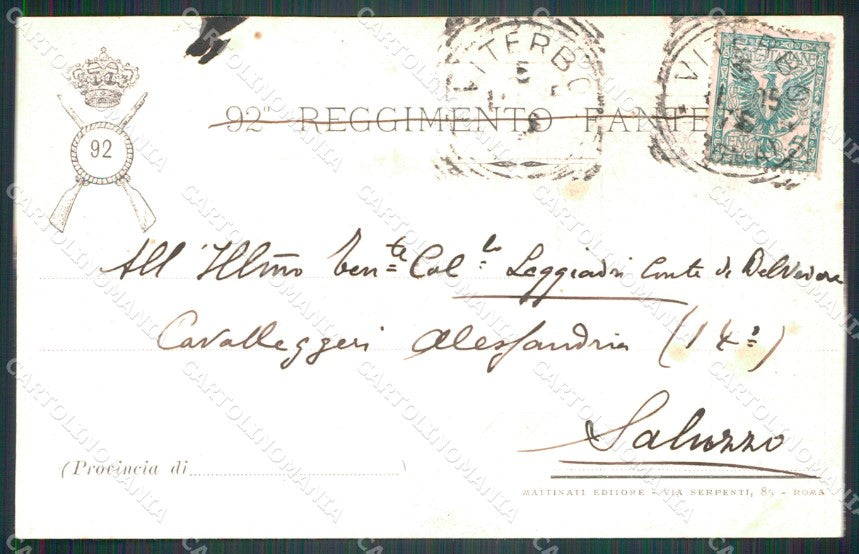 VITERBO
VITERBO
92
92° REGGIMENTO FANTE
All' Illmo Ten.te Col.lo Leggiadri Conte de Belvedere
Cavalleggeri Alessandria (14°)
Saluzzo
(Provincia di )
MATTINATI EDITORE - VIA SERPENTI, 85 - ROMA
CARTOLINOMANIA